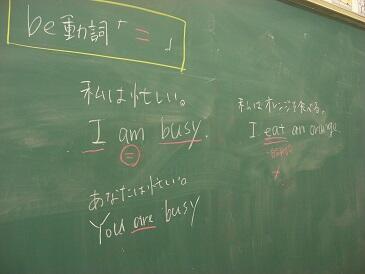 be動詞「=」
私は忙しい。
I am busy.
=
あなたは忙しい。
You are busy
私はオレンジを食べる。
I eat an orange